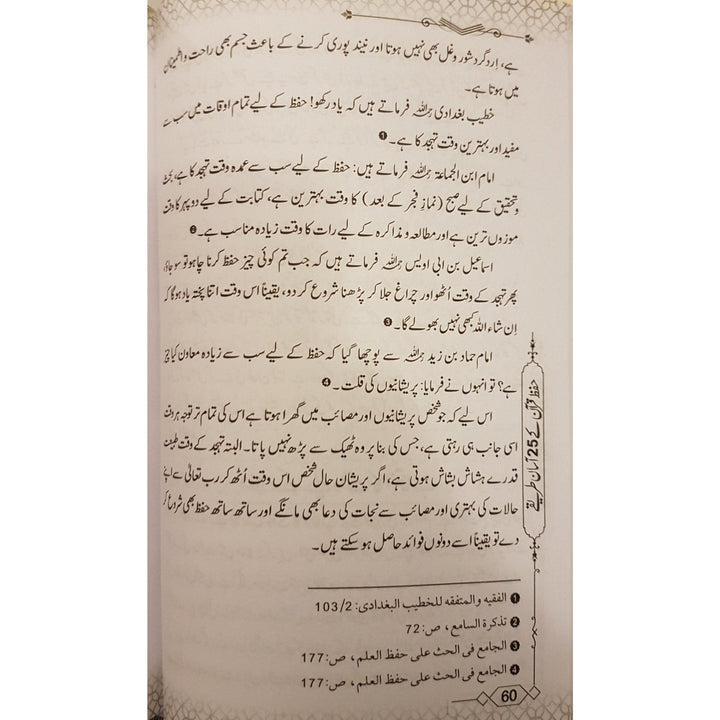 ہے، اِردگرد شور و غل بھی نہیں ہوتا اور نیند پوری کرنے کے باعث جسم بھی راحت و اطمینان
میں ہوتا ہے۔
خطیب بغدادی رحمہ اللہ فرماتے ہیں کہ یاد رکھو! حفظ کے لیے تمام اوقات میں سب سے
مفید اور بہترین وقت تہجد کا ہے۔ ❶
امام ابن الجماعۃ رحمہ اللہ فرماتے ہیں: حفظ کے لیے سب سے عمدہ وقت تہجد کا ہے، بحث
و تحقیق کے لیے صبح (نمازِ فجر کے بعد) کا وقت بہترین ہے، کتابت کے لیے دوپہر کا وقت
موزوں ترین ہے اور مطالعہ و مذاکرہ کے لیے رات کا وقت زیادہ مناسب ہے۔ ❷
اسماعیل بن ابی اویس رحمہ اللہ فرماتے ہیں کہ جب تم کوئی چیز حفظ کرنا چاہو تو سو جاؤ،
پھر تہجد کے وقت اُٹھو اور چراغ جلا کر پڑھنا شروع کر دو، یقیناً اس وقت اتنا پختہ یاد ہوگا کہ
اِن شاء اللہ کبھی نہیں بھولے گا۔ ❸
امام حماد بن زید رحمہ اللہ سے پوچھا گیا کہ حفظ کے لیے سب سے زیادہ معاون کیا چیز
ہے؟ تو انہوں نے فرمایا: پریشانیوں کی قلت۔ ❹
اس لیے کہ جو شخص پریشانیوں اور مصائب میں گھرا ہوتا ہے اس کی تمام تر توجہ ہر وقت
اسی جانب ہی رہتی ہے، جس کی بنا پر وہ ٹھیک سے پڑھ نہیں پاتا۔ البتہ تہجد کے وقت طبیعت
قدرے ہشاش بشاش ہوتی ہے، اگر پریشان حال شخص اس وقت اُٹھ کر رب تعالیٰ سے اپنے
حالات کی بہتری اور مصائب سے نجات کی دعا بھی مانگے اور ساتھ ساتھ حفظ بھی شروع کر
دے تو یقیناً اسے دونوں فوائد حاصل ہو سکتے ہیں۔
❶ الفقيه والمتفقه للخطيب البغدادى: 103/2
❷ تذكرة السامع، ص: 72
❸ الجامع فى الحث على حفظ العلم، ص: 177
❹ الجامع فى الحث على حفظ العلم، ص: 177
حفظِ قرآن کے 25 آسان طریقے
60